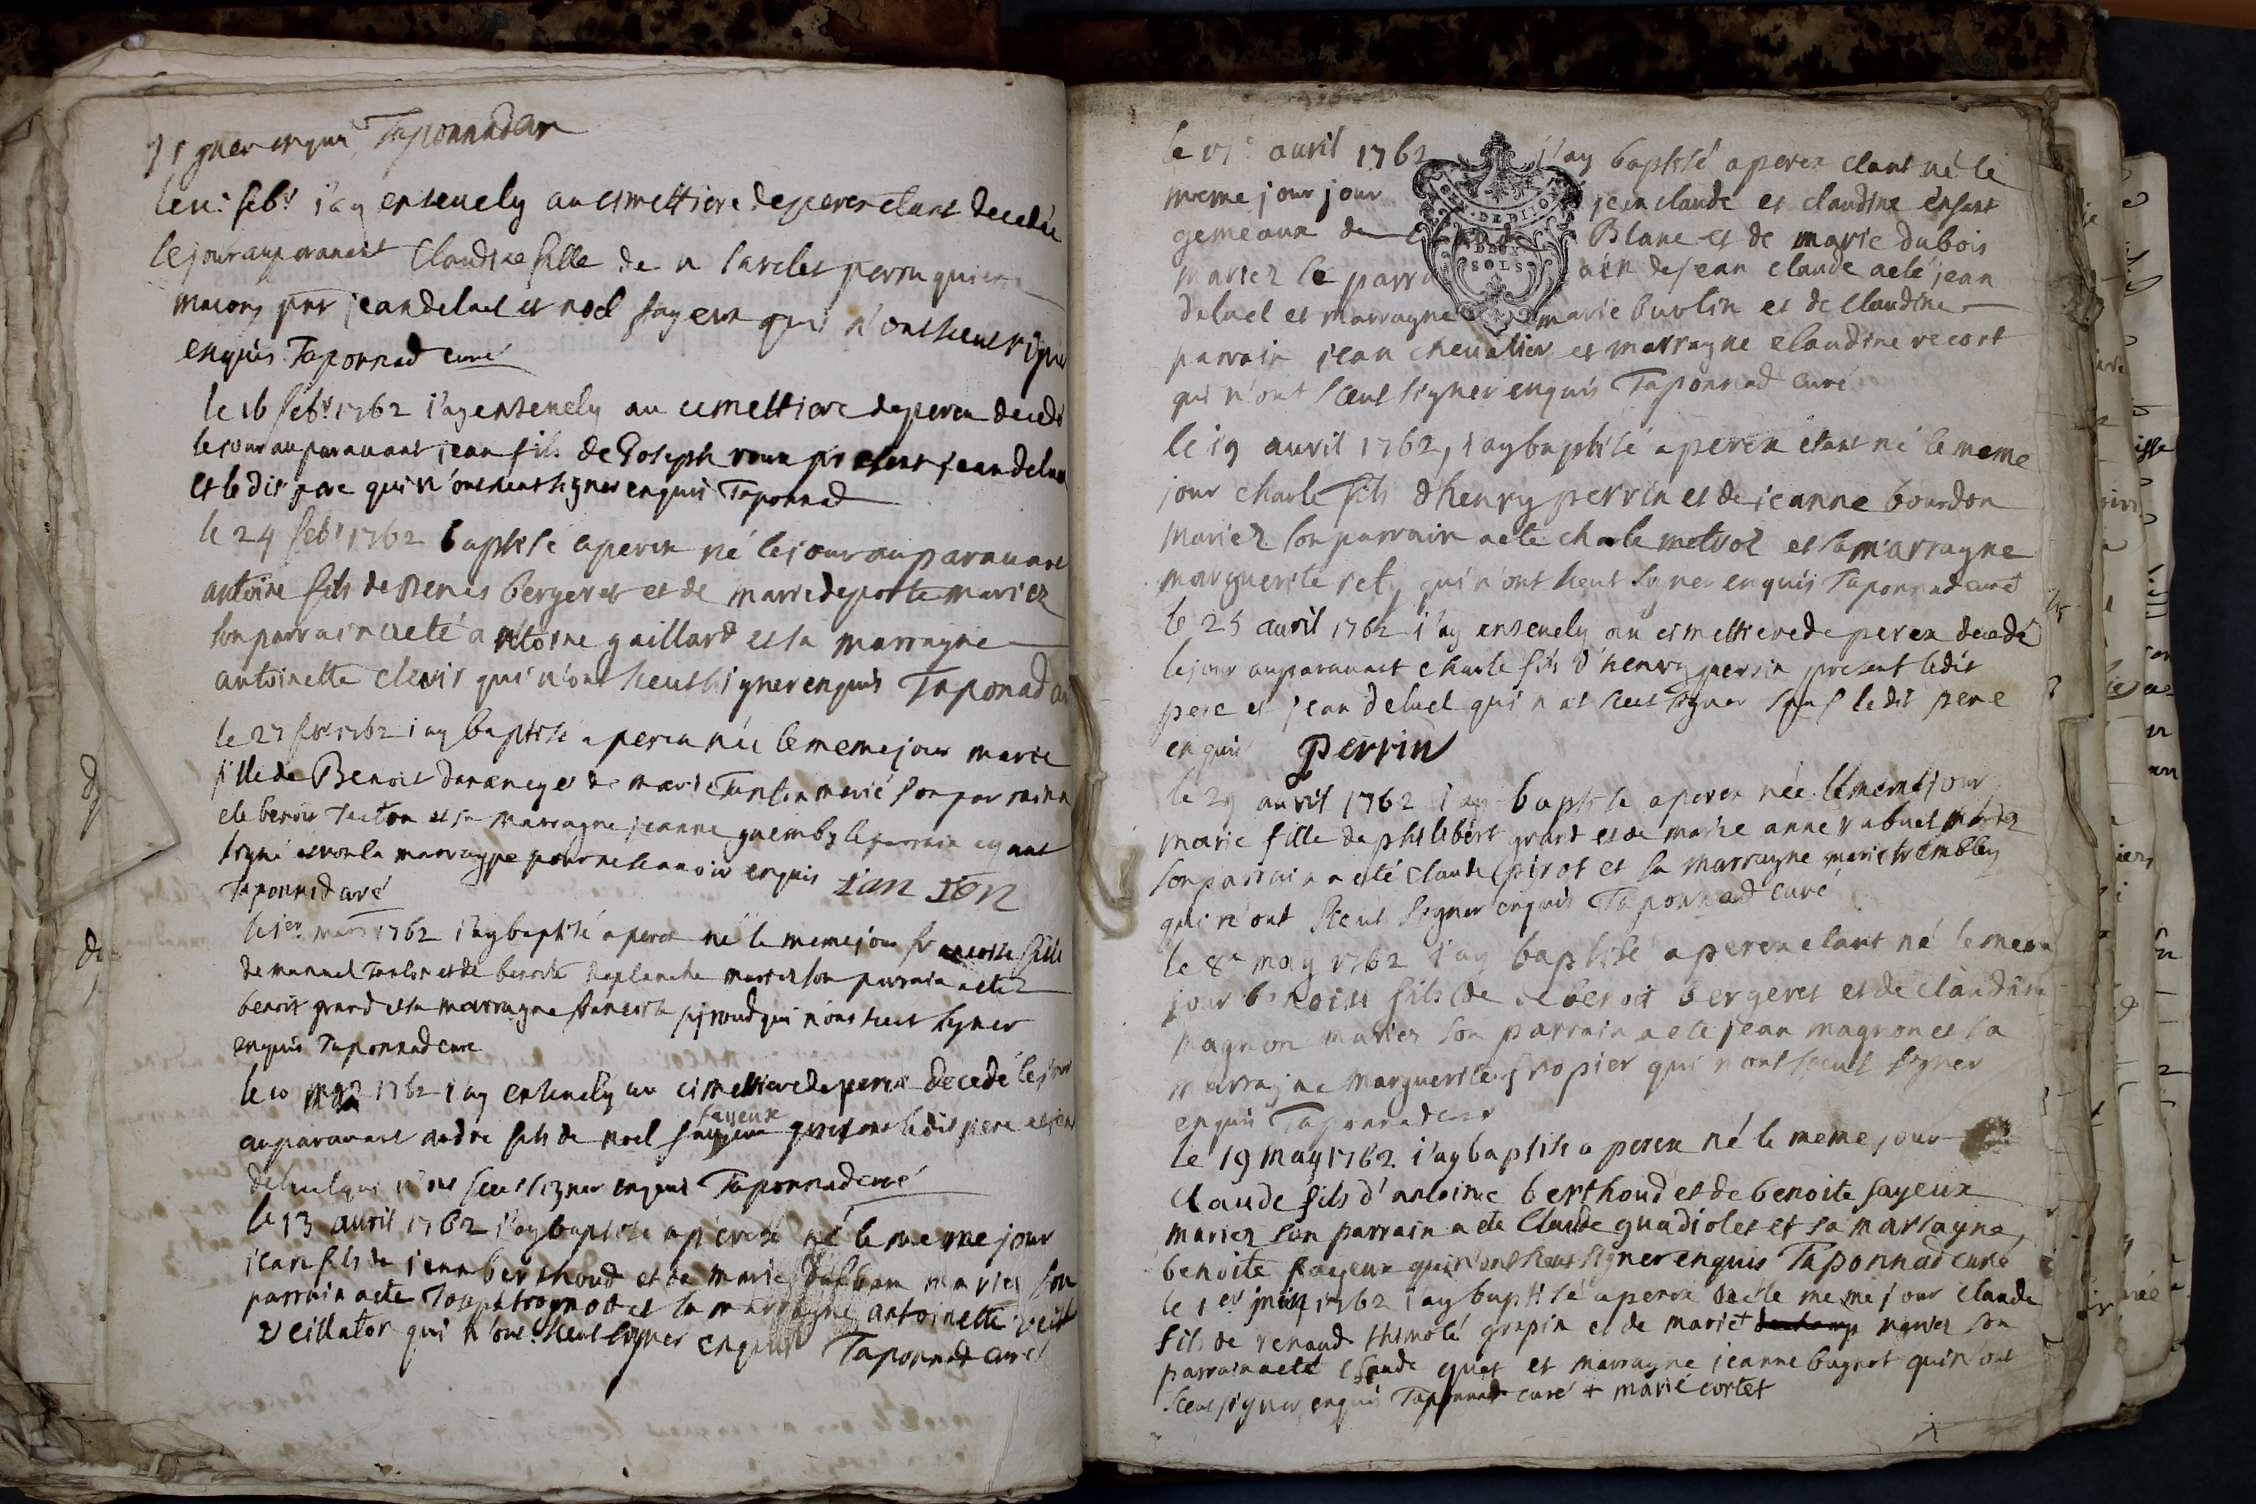 signer enquis Taponnad cur
le 11e febr j'ay ensevely au cimettiere de peren etant decedée
le jour auparavant Claudine fille de
macon pnt jean deluel et noel fayeux qui n'ont sceut signer
enquis Taponnad curé
le 16 febr 1762 j'ay ensevely au cimettiere de peren decedé
le jour auparavant jean fils de Joseph roux present jean deluel
et le dit pere qui n'ont sceut signer enquis Taponnad
le 24 febr 1762 baptisé a peren né le jour auparavant
antoine fils de Denis bergeret et de marie deporte mariez
son parrain a eté antoine gaillard et sa marragne
antoinette clevis qui n'ont sceut signer enquis Taponad
le 27 febr 1762 j ay baptisé a peren née le meme jour marie
fille de Benoit et de marie Tanton marié son parrain
eté benoit Teiton et sa marragne jeanne le parrain ayant
signé et non la marragne pour ne scavoir enquis ian Ton
Taponnad curé
le 1er mars 1762 j'ay baptisé a peren né le meme jour francoise fille
de manuel Tanton et de benoite deplanche mariez son parrain a eté
benoit grand et sa marragne francoise qui n'ont sceut signer
enquis Taponnad curé
le 10 1762 j ay ensevely au cimettiere de peren decedé le jour
auparavant andré fils de noel fayeux present ledit pere et jean
fayeux
deluel qui n'ont sceut signer enquis Taponnad curé
le 13 avril 1762 j'ay baptisé a peren né le meme jour
jean fils de jean berthoud et de marie mariez son
parrain a eté Joseph trognot et la marragne antoinette
veillator qui n'ont sceut signer enquis Taponnad curé
le 17e avril 1762 j'ay baptisé a peren etant né le
meme jour jour jean claude et claudine enfant
gemeaux de Blanc et de marie dubois
mariez le parrain de jean claude a eté jean
DE DIJON
DEUX
SOLS
deluel et marragne marie burlin et de Claudine
parrain jean chevalier et marragne claudine recort
qui n'ont sceut signer enquis Taponnad curé
le 19 avril 1762, j ay baptisé a peren etant né le meme
jour charle fils d'henry perrin et de jeanne bourdon
mariez son parrain a eté charle metrot et sa marragne
marguerite rety qui n'ont sceut signer enquis Taponnad curé
le 25 avril 1762 j'ay ensevely au cimettiere de peren decedé
le jour auparavant charle fils d'henry perrin present ledit
pere et jean deluel qui n at sceut signer sauf le dit pere
enquis Perrin
le 29 avril 1762 j ay baptisé a peren née le meme jour
marie fille de philibert grand et de marie anne mariez
son parrain a eté claude pirot et sa marragne marie trembley
qui n'ont sceut signer enquis Taponnad curé
le 8e may 1762 j'ay baptisé a peren etant né le meme
jour benoist fils de benoit bergeret et de claudine
magnon mariez son parrain a eté jean magnon et sa
marragne marguerite qui n ont sceut signer
enquis Taponnad curé
le 19 may 1762 j'ay baptisé a peren né le meme jour
Claude fils d'antoine berthoud et de benoite fayeux
mariez son parrain a eté Claude guadiolet et sa marragne
benoite fayeux qui n'ont sceut signer enquis Taponnad curé
le 1er juin 1762 j ay baptisé a peren né le meme jour claude
fils de renaud thimoté grapin et de marie + mariez son
parrain a eté claude guet et marragne jeanne bugnot qui n'ont
sceut signer enquis Taponnad curé + marie cortet